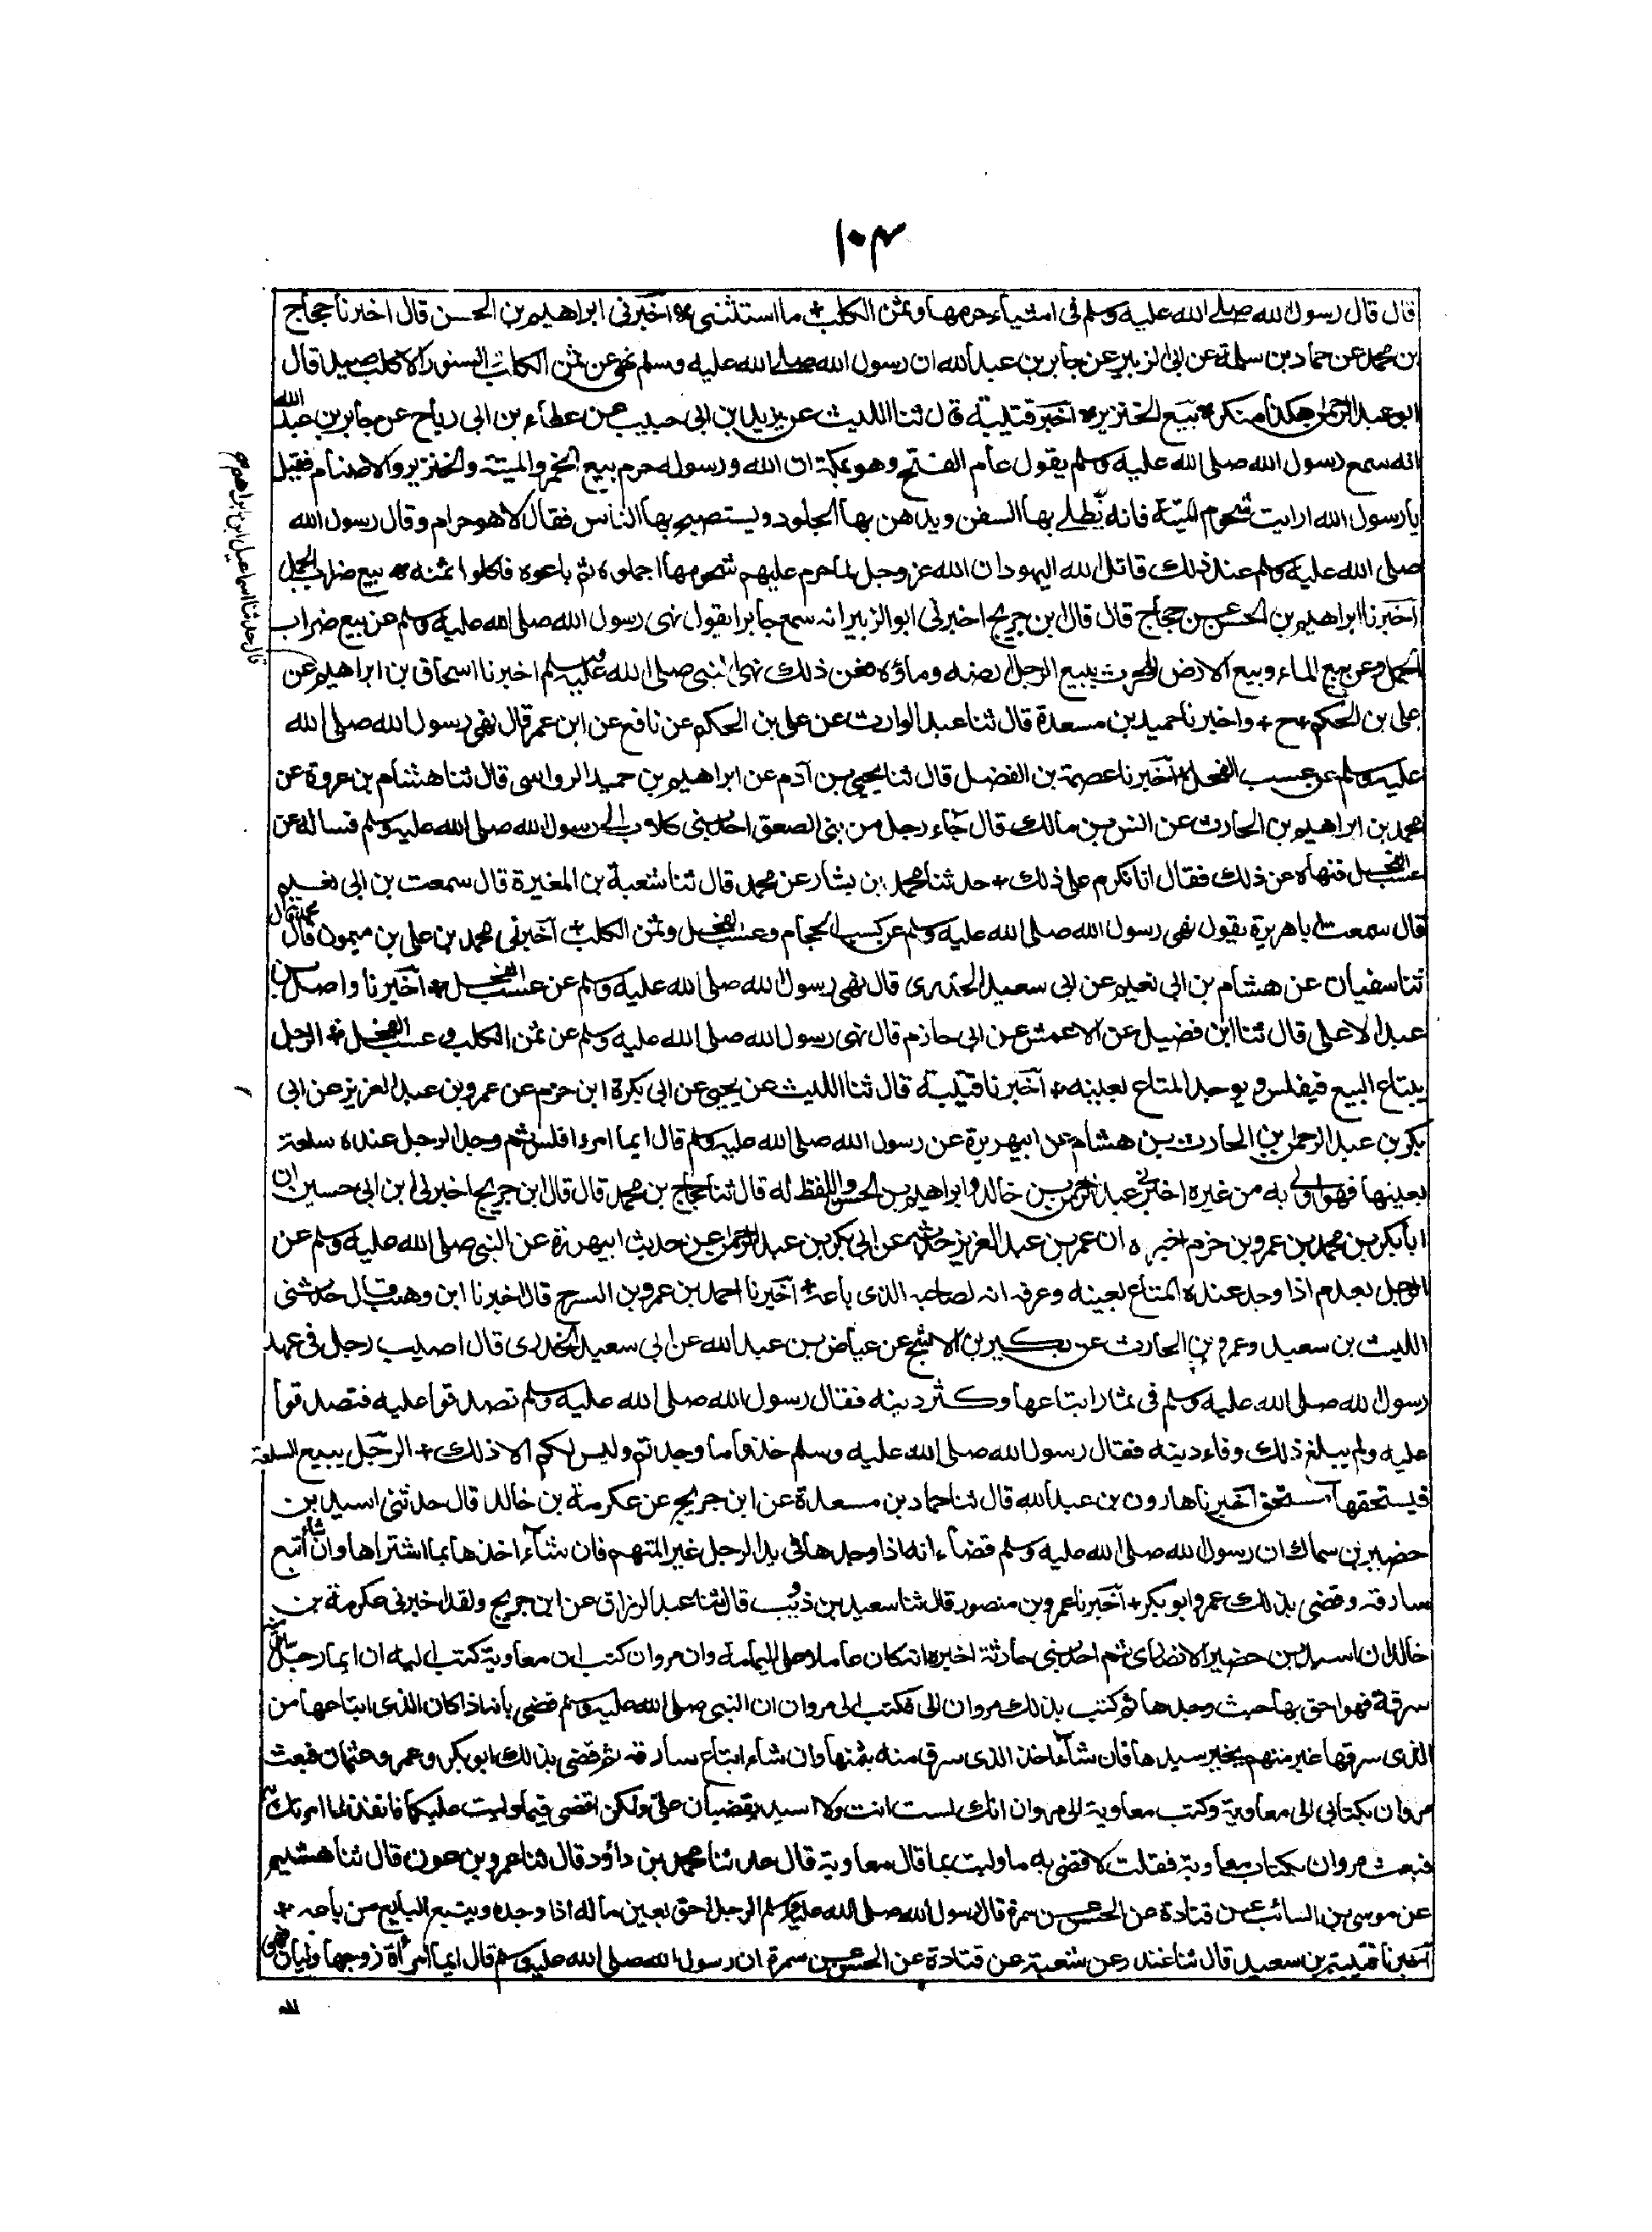 ١٠٤
قال قال رسول الله صلے الله عليه وسلم فى اشياء حرمها وثمن الكلب + ما استثنى * اخبرنى ابراهيم بن الحسن قال اخبرنا حجاج
بن محمد عن حماد بن سلمة عن ابى الزبير عن جابر بن عبد الله ان رسول الله صلے الله عليه وسلم نهى عن ثمن الكلب والسنور الا كلب صيد قال
ابو عبد الرحمن هكذا منكر * بيع الخنزير * اخبر قتيبة قال ثنا الليث عن يزيد بن ابى حبيب عن عطاء بن ابى رباح عن جابر بن عبد الله
انه سمع رسول الله صلى الله عليه وسلم يقول عام الفتح وهو بمكة ان الله ورسوله حرم بيع الخمر والميتة والخنزير والاصنام فقيل
يا رسول الله ارايت شحوم الميتة فانه يطلے بها السفن ويدهن بها الجلود ويستصبح بها الناس فقال لا هو حرام وقال رسول الله
صلى الله عليه وسلم عند ذلك قاتل الله اليهود ان الله عز وجل لما حرم عليهم شحومها اجملوه ثم باعوه فاكلوا ثمنه * بيع ضراب الجمل
اخبرنا ابراهيم بن الحسن عن حجاج قال قال ابن جريج اخبرنى ابو الزبير انه سمع جابرا يقول نهى رسول الله صلى الله عليه وسلم عن بيع ضراب
الجمل وعن بيع الماء وبيع الارض للحرث يبيع الرجل ارضه وماؤه فعن ذلك نهى النبى صلى الله عليه وسلم اخبرنا اسحاق بن ابراهيم عن
على بن الحكم + ح + واخبرنا حميد بن مسعدة قال ثنا عبد الوارث عن على بن الحكم عن نافع عن ابن عمر قال نهى رسول الله صلى الله
عليه وسلم عن عسب الفحل * اخبرنا عصمة بن الفضل قال ثنا يحيى بن آدم عن ابراهيم بن حميد الرواسى قال ثنا هشام بن عروة عن
محمد بن ابراهيم بن الحارث عن انس بن مالك قال جاء رجل من بنى الصعق احد بنى كلاب الى رسول الله صلى الله عليه وسلم فساله عن
عسب الفحل فنهاه عن ذلك فقال انا نكرم على ذلك + حدثنا محمد بن بشار عن محمد قال ثنا شعبة بن المغيرة قال سمعت بن ابى نعيم
قال سمعت ابا هريرة يقول نهى رسول الله صلى الله عليه وسلم عن كسب الحجام وعسب الفحل وثمن الكلب + اخبرنى محمد بن على بن ميمون قال
ثنا سفيان عن هشام بن ابى نعيم عن ابى سعيد الخدرى قال نهى رسول الله صلى الله عليه وسلم عن عسب الفحل + اخبرنا واصل بن
عبد الاعلى قال ثنا ابن فضيل عن الاعمش عن ابى حازم قال نهى رسول الله صلى الله عليه وسلم عن ثمن الكلب وعسب الفحل + الرجل
يبتاع البيع فيفلس ويوجد المتاع بعينه + اخبرنا قتيبة قال ثنا الليث عن يحيى عن ابى بكرة ابن حزم عن عمرو بن عبد العزيز عن ابى
بكر بن عبد الرحمن بن الحارث بن هشام عن ابيهريرة عن رسول الله صلى الله عليه وسلم قال ايما امرء افلس ثم وجد الرجل عنده سلعة
بعينها فهو اولى به من غيره اخبرنى عبد الرحمن بن خالد وابراهيم بن الحسن واللفظ له قال ثنا حجاج بن محمد قال قال ابن جريج اخبرنى ابن ابى حسين ان
ابا بكر بن محمد بن عمرو بن حزم اخبره ان عمر بن عبد العزيز حدثه عن ابى بكر بن عبد الرحمن عن حديث ابيهريرة عن النبى صلى الله عليه وسلم عن
الرجل يعدم اذا وجد عنده المتاع بعينه وعرفه انه لصاحبه الذى باعه + اخبرنا احمد بن عمرو بن السرح قال اخبرنا ابن وهب قال حدثنى
الليث بن سعيد وعمرو بن الحارث عن بكير بن الاشج عن عياض بن عبد الله عن ابى سعيد الخدرى قال اصيب رجل فى عهد
رسول الله صلى الله عليه وسلم فى ثمار ابتاعها وكثر دينه فقال رسول الله صلى الله عليه وسلم تصدقوا عليه فتصدقوا
عليه ولم يبلغ ذلك وفاء دينه فقال رسول الله صلى الله عليه وسلم خذوا ما وجدتم وليس لكم الا ذلك + الرجل يبيع السلعة
فيستحقها مستحق اخبرنا هارون بن عبد الله قال ثنا حماد بن مسعدة عن ابن جريج عن عكرمة بن خالد قال حدثنى اسيد بن
حضير بن سماك ان رسول الله صلى الله عليه وسلم قضاء انه اذا وجدها فى يد الرجل غير المتهم فان شاء اخذها بما اشتراها وان شاء اتبع
سارقه وقضى بذلك عمر وابو بكر + اخبرنا عمرو بن منصور قال ثنا سعيد بن ذويب قال ثنا عبد الرزاق عن ابن جريج ولقد اخبرنى عكرمة بن
خالد ان اسيد بن حضير الانصارى ثم احد بنى حارثة اخبره انه كان عاملا على اليمامة وان مروان كتب ان معاوية كتب اليه ان ايما رجل سرق منه
سرقة فهو احق بها حيث وجدها ثم كتب بذلك مروان الى فكتب الى مروان ان النبى صلى الله عليه وسلم قضى بانه اذا كان الذى ابتاعها من
الذى سرقها غير متهم يخير سيدها فان شاء اخذ الذى سرق منه بثمنها وان شاء ابتاع سارقه ثم قضى بذلك ابو بكر وعمر وعثمان فبعث
مروان بكتابى الى معاوية وكتب معاوية الى مروان انك لست انت ولا اسيد يقضيان على ولكن اقضى فيما وليت عليكما فانفذ لما امرتك به
فبعث مروان بكتاب معاوية فقلت لا اقضى به ما وليت بما قال معاوية قال حدثنا محمد بن داؤد قال ثنا عمرو بن عون قال ثنا هشيم
عن موسى بن السائب عن قتادة عن الحسن عن سمرة قال رسول الله صلى الله عليه وسلم الرجل احق بعين ماله اذا وجده ويتبع البايع من باعه +
اخبرنا قتيبة بن سعيد قال ثنا غندر عن شعبة عن قتادة عن الحسن عن سمرة ان رسول الله صلى الله عليه وسلم قال ايما امرأة زوجها وليان فهى
قال حدثنا اسماعيل ابن ابراهيم